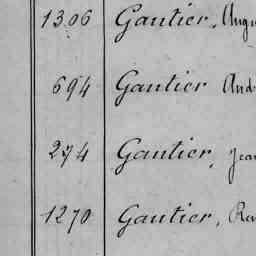 1306 Gautier, Augu
694 Gautier And
274 Gautier, Jean
1270 Gautier, Ren